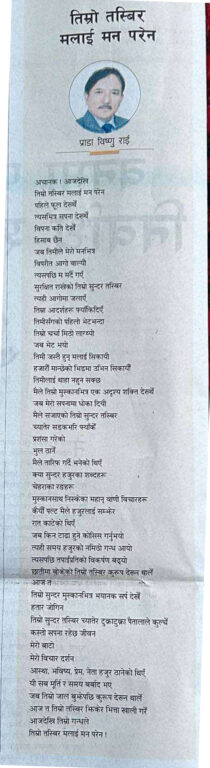 तिम्रो तस्बिर
मलाई मन परेन
प्राडा विष्णु राई
अचानक ! आजदेखि
तिम्रो तस्बिर मलाई मन परेन
पहिले फूल देख्थेँ
त्यसभित्र सपना देख्थेँ
विपना कति देखेँ
हिसाब छैन
जब तिमीले मेरो मनभित्र
विपरीत आगो बाल्यौ
त्यसपछि म मर्दै गएँ
सुरक्षित राखेको तिम्रो सुन्दर तस्बिर
त्यही आगोमा जलाएँ
तिम्रा आदर्शहरू फ्याँकिदिएँ
तिमीसँगको पहिलो भेटभन्दा
तिम्रो चर्चा मिठो लाग्थ्यो
जब भेट भयो
तिमी जस्तै हुनु मलाई सिकायौ
हजारौँ मान्छेको भिडमा उभिन सिकायौ
तिमीलाई थाहा नहुन सक्छ
मैले तिम्रो मुस्कानभित्र एक अदृश्य शक्ति देख्थेँ
जब मेरो सपनामा धोका दियौ
मैले सजाएको तिम्रो सुन्दर तस्बिर
च्यातेर सडकभरि फ्याँकेँ
प्रशंसा गरेको
भुल ठानेँ
मैले तारिफ गर्दै भनेको थिएँ
क्या सुन्दर हजुरका शब्दहरू
चेहराका रङहरू
मुस्कानसाथ निस्केका महान् वाणी विचारहरू
कैयौँ पल्ट मैले हजुरलाई सम्झेर
रात काटेको थिएँ
जब किन टाढा हुने कोसिस गर्नुभयो
त्यही समय हजुरको नमिठो गन्ध आयो
त्यसपछि तपाईंप्रतिको विकर्षण बढ्यो
छातीमा बोकेको तिम्रो तस्बिर कुरूप देख्न थालेँ
आज त
तिम्रो सुन्दर मुस्कानभित्र भयानक सर्प देखेँ
हतार जोगिन
तिम्रो सुन्दर तस्बिर च्यातेर टुक्राटुक्रा पैतालाले कुल्चेँ
कस्तो सपना रहेछ जीवन
मेरो बाटो
मेरो विचार दर्शन
आस्था, भविष्य, प्रेम, नेता हजुर ठानेको थिएँ
यी सब मूर्ति र समय बर्बाद भए
जब तिम्रो जाल बुझेपछि कुरूप देख्न थालेँ
आज त तिम्रो तस्बिर झिकेर भित्ता खाली गरेँ
आजदेखि तिम्रो गन्धले
तिम्रो तस्बिर मलाई मन परेन !